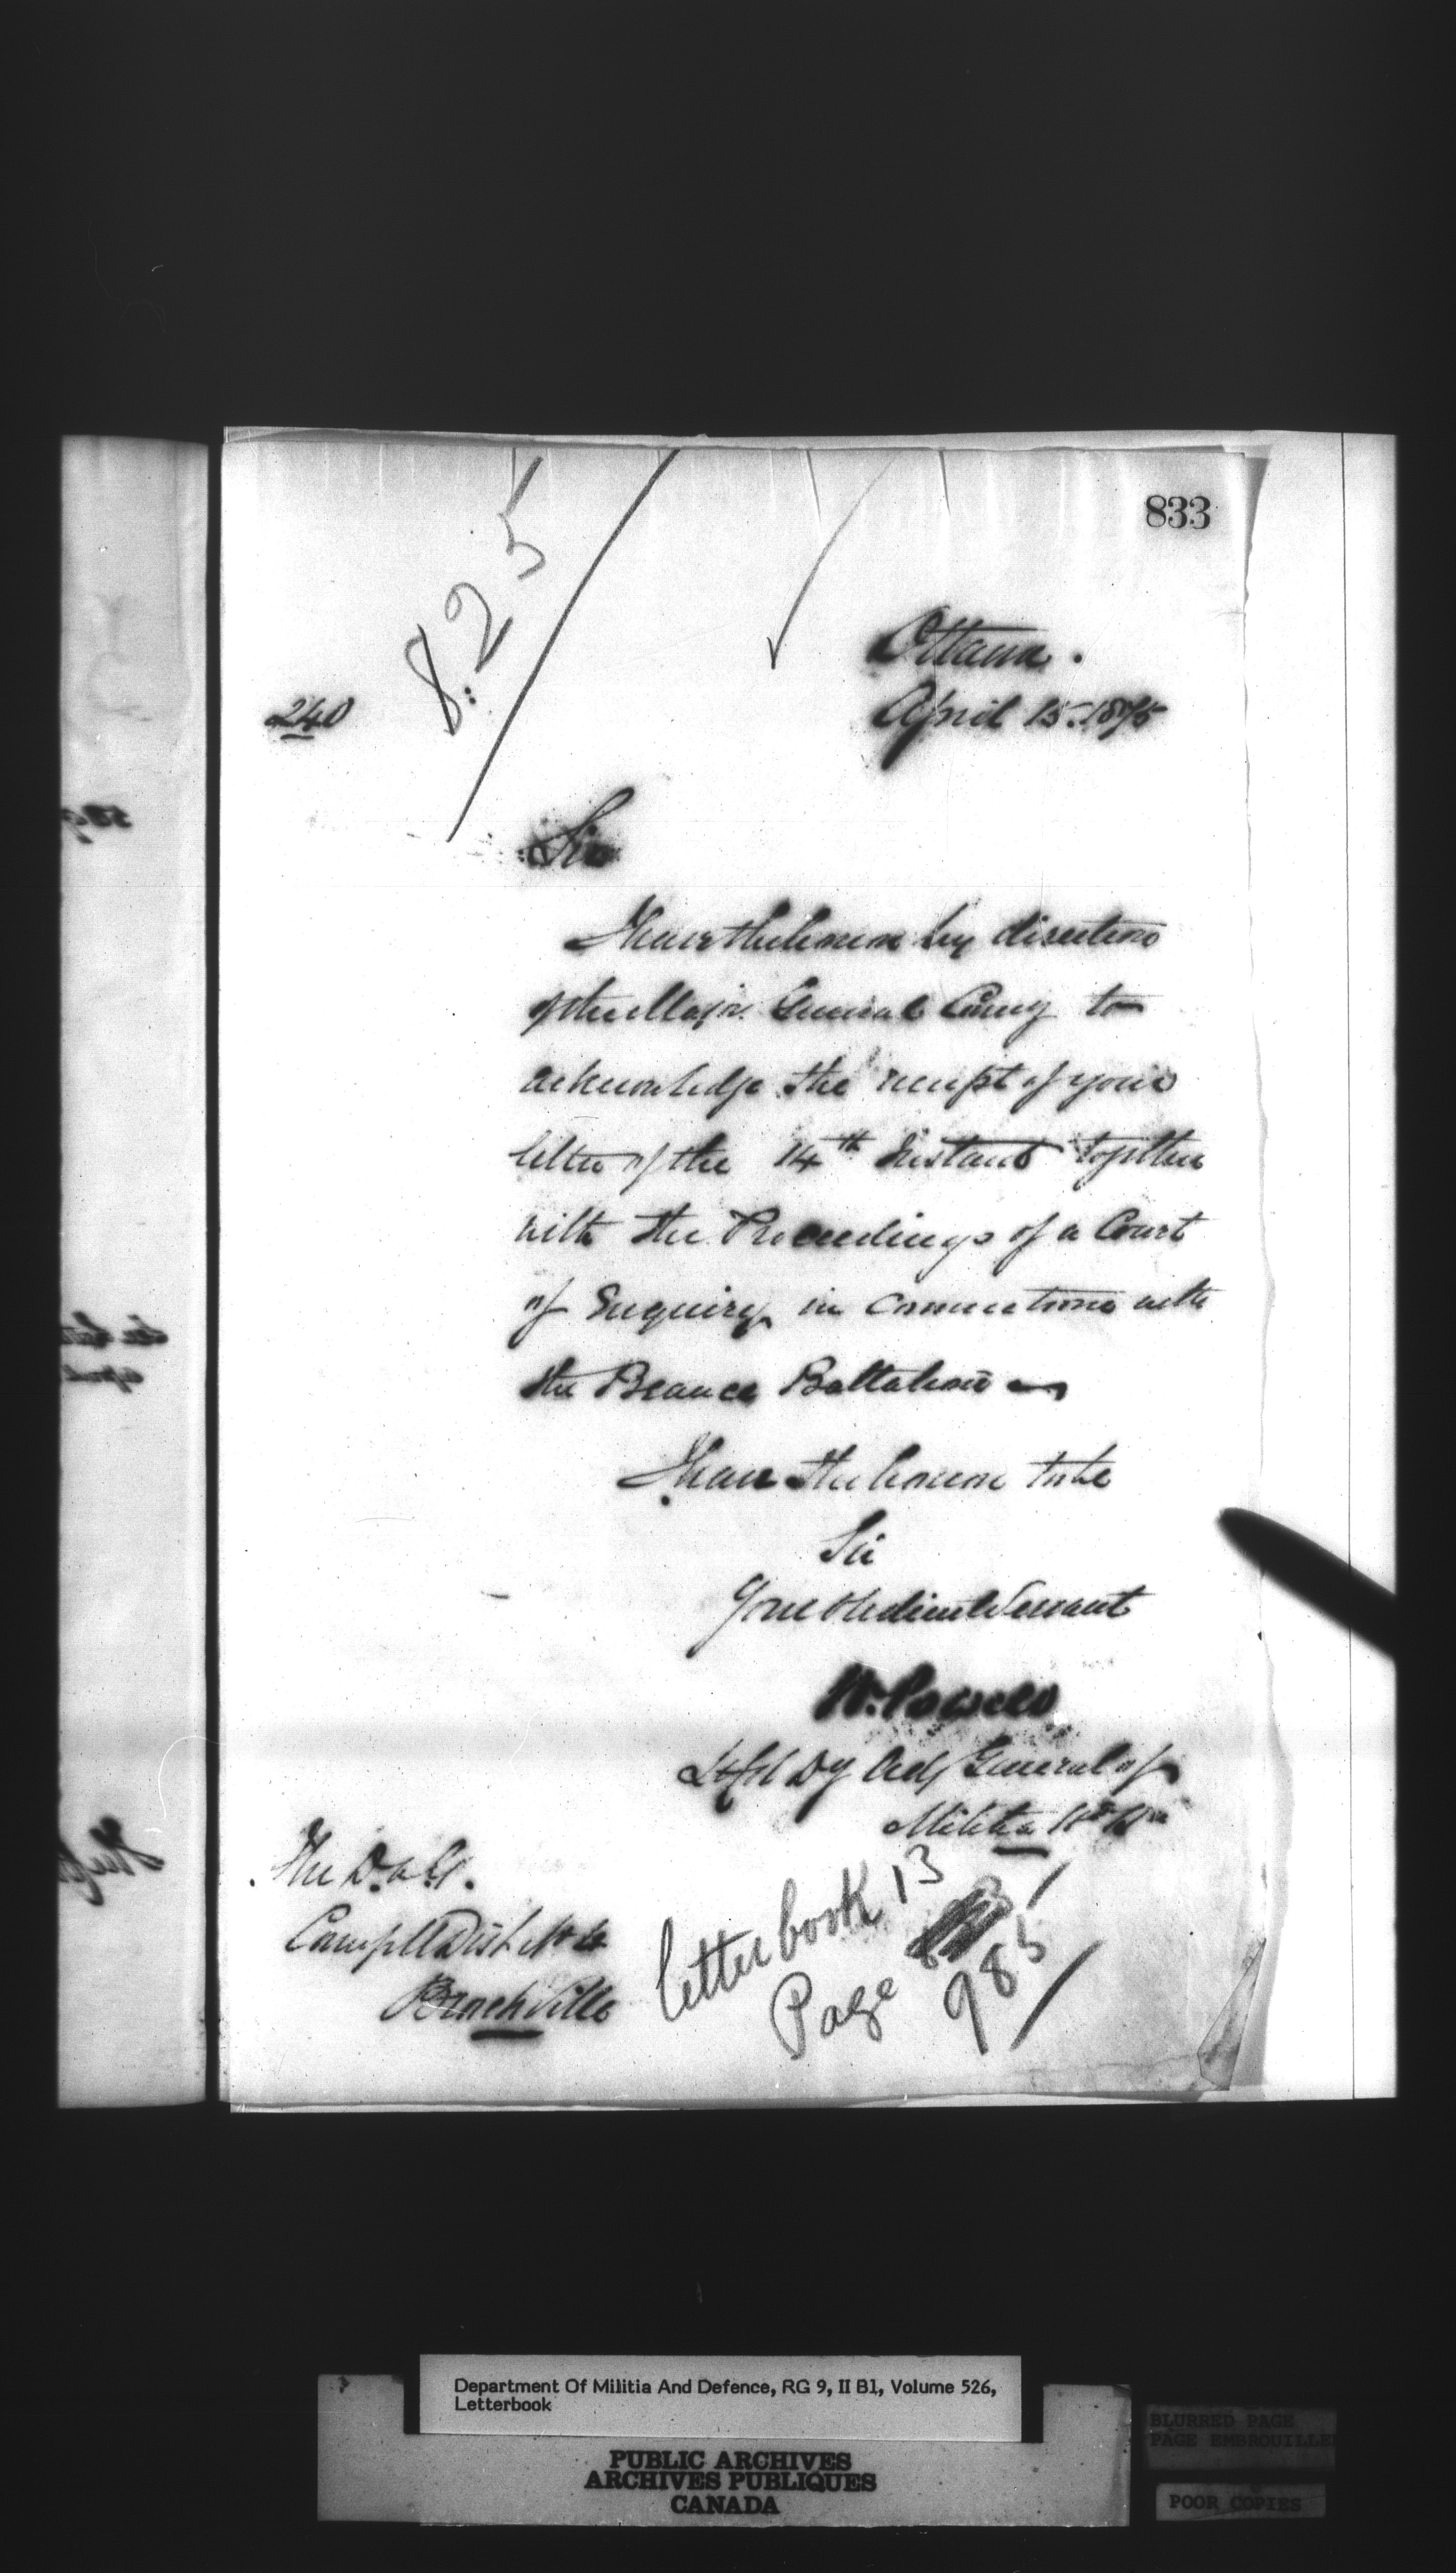 833
825
Ottawa.
April 15. 1875
240
Sir
I have the honor by direction
of the Major General Comg to
acknowledge the receipt of your
letter of the 14th Instant together
with the Proceedings of a Court
of Enquiry in connection with
the Beauce Battalion
I have the honor to be
Sir
Your obedient Servant
W. Powell
Dy Adj General of
Militia
The D.A.G.
Dist No
letter book 13
Page 985
Department Of Militia And Defence, RG 9, II B1, Volume 526,
Letterbook
PUBLIC ARCHIVES
ARCHIVES PUBLIQUES
CANADA
BLURRED PAGE
PAGE EMBROUILLE
POOR COPIES